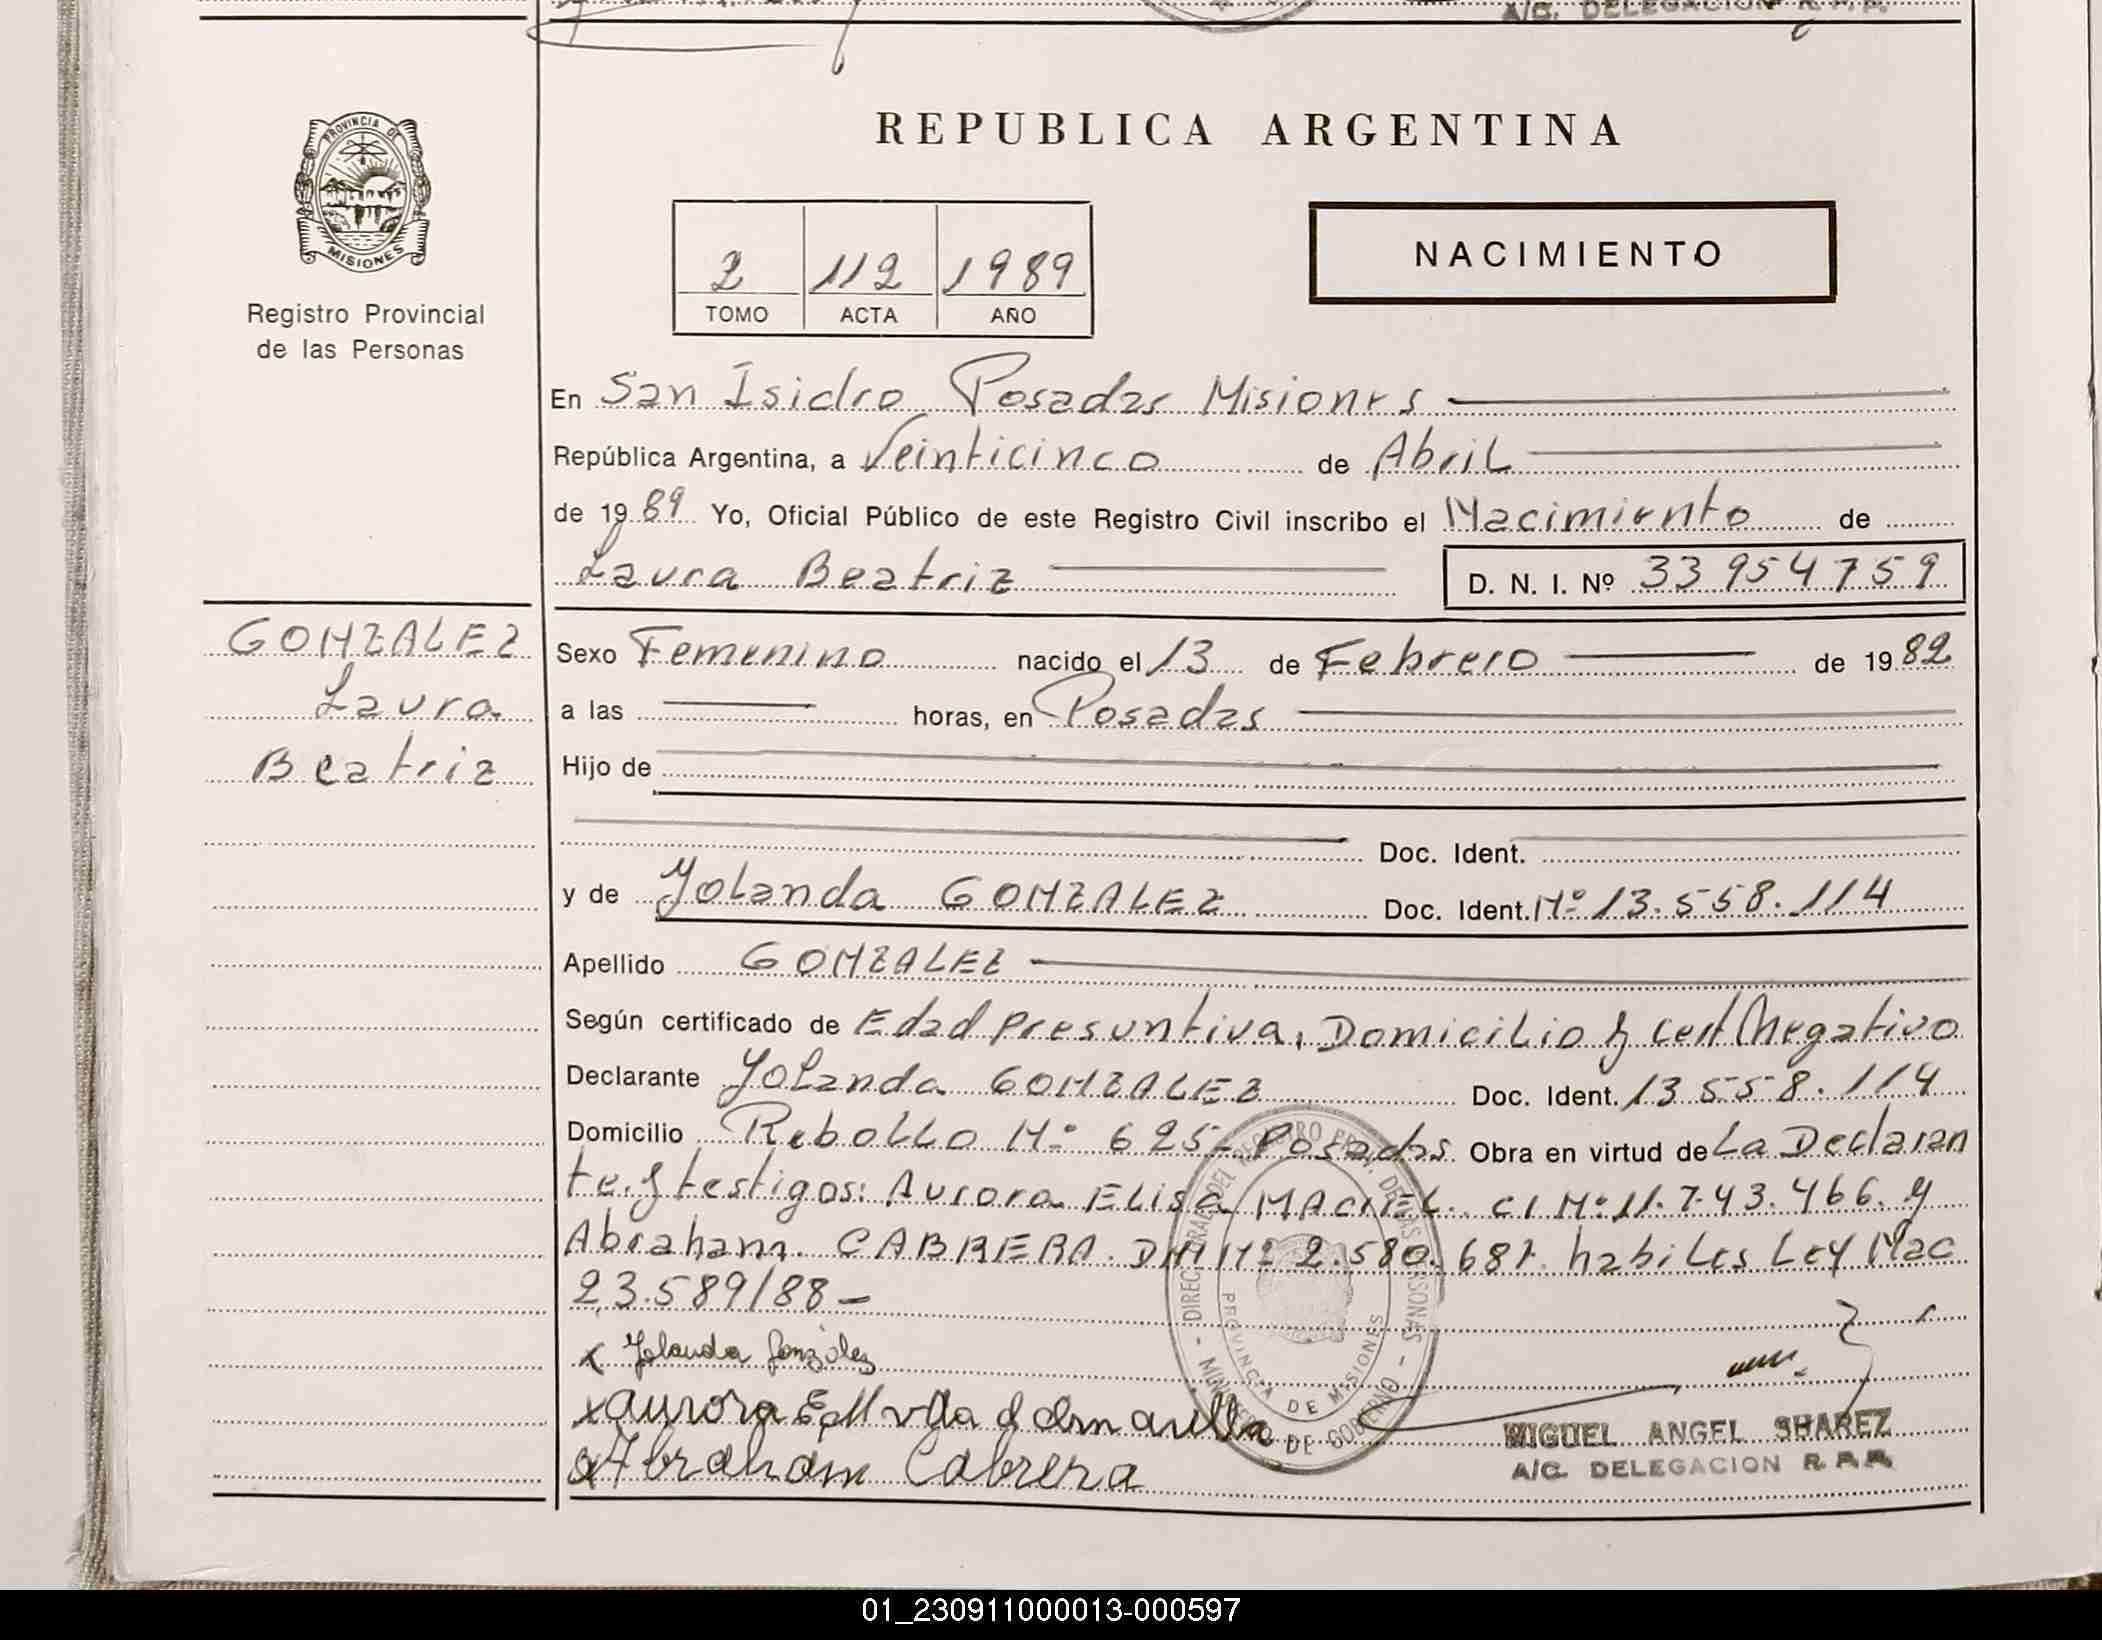 A/C. DELEGACION R. P. P.
PROVINCIA DE
MISIONES
Registro Provincial
de las Personas
REPUBLICA ARGENTINA
2 112 1989
TOMO ACTA AÑO
NACIMIENTO
En San Isidro Posadas Misiones
República Argentina, a Veinticinco de Abril
de 1989 Yo, Oficial Público de este Registro Civil inscribo el Nacimiento de
Laura Beatriz D. N. I. Nº 33954759
GONZALEZ
Laura
Beatriz
Sexo Femenino nacido el 13 de Febrero de 1982
a las horas, en Posadas
Hijo de
Doc. Ident.
y de Yolanda GONZALEZ Doc. Ident. Nº 13.558.114
Apellido GONZALEZ
Según certificado de Edad presuntiva, Domicilio y cert Negativo
Declarante Yolanda GONZALEZ Doc. Ident. 13558.114
Domicilio Rebollo Nº 625- Posadas Obra en virtud de La Declaran
te y testigos: Aurora Elisa MACIEL. CI Nº 11.743.466. y
Abraham CABRERA DNI Nº 2.580.681 habiles Ley Nac
23.589/88-
x Yolanda González
x Aurora E M vda d
Abraham Cabrera
DIREC. GRAL. DEL REGISTRO PROV. DE LAS PERSONAS
PROVINCIA DE MISIONES
DE GOBIERNO
MIGUEL ANGEL SUAREZ
A/C. DELEGACION R. P. P.
01_230911000013-000597